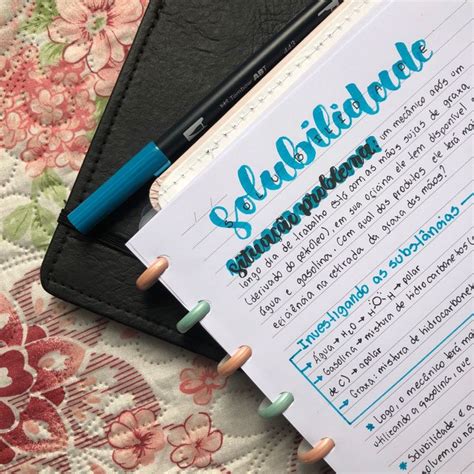 Tombow ABT 443
Solubilidade
SOLUBILIDADE
Situação problema:
um mecânico após um
longo dia de trabalho está com as mãos sujas de graxa
(derivado do petróleo), em sua oficina ele tem disponível
água e gasolina. Com qual dos produtos ele terá mais
eficiência na retirada da graxa das mãos?
Investigando as substâncias
Água → H₂O → H-O-H → polar
Gasolina → mistura de hidrocarbonetos (
de C) → apolar
Graxa: mistura de hidrocarbone
* Logo, o mecânico terá mai
utilizando a gasolina, que
* Solubilidade: é a